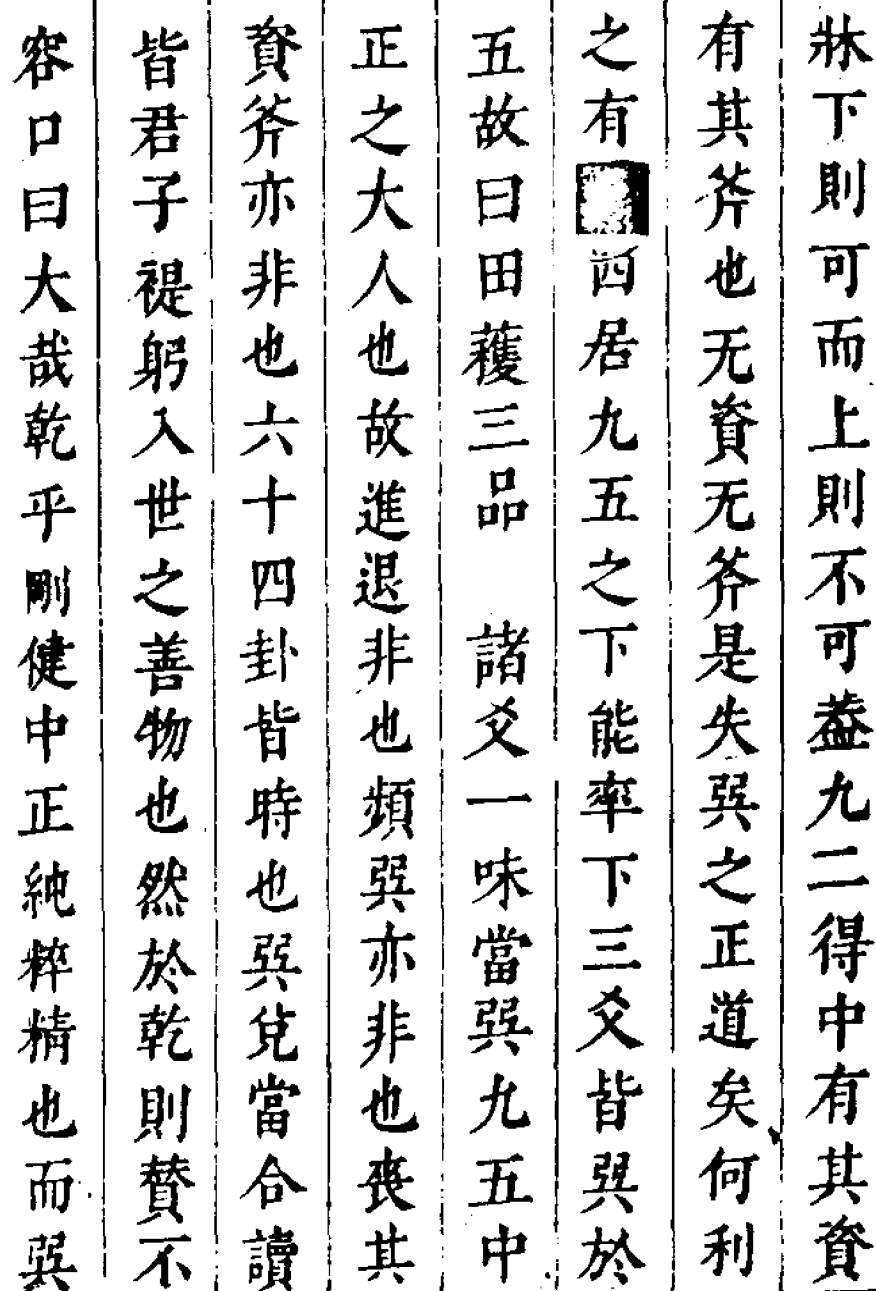 牀下則可而上則不可葢九二得中有其資
有其斧也无資无斧是失巽之正道矣何利
之有四居九五之下能率下三爻皆巽於
五故曰田穫三品　諸爻一味當巽九五中
正之大人也故進退非也頻巽亦非也喪其
資斧亦非也六十四卦皆時也巽兌當合讀
皆君子禔躬入世之善物也然於乾則贊不
容口曰大哉乾乎剛健中正純粹精也而巽